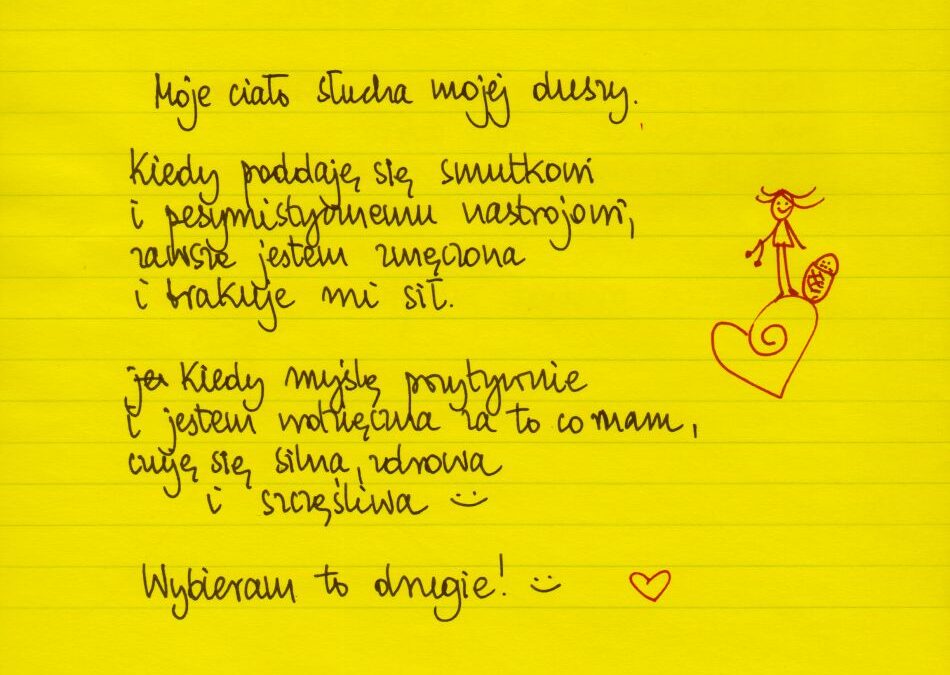 Moje ciało słucha mojej duszy.
Kiedy poddaję się smutkowi
i pesymistycznemu nastrojowi,
zawsze jestem zmęczona
i brakuje mi sił.
ja Kiedy myślę pozytywnie
i jestem wdzięczna za to co mam,
czuję się silna, zdrowa
i szczęśliwa :)
Wybieram to drugie! :)